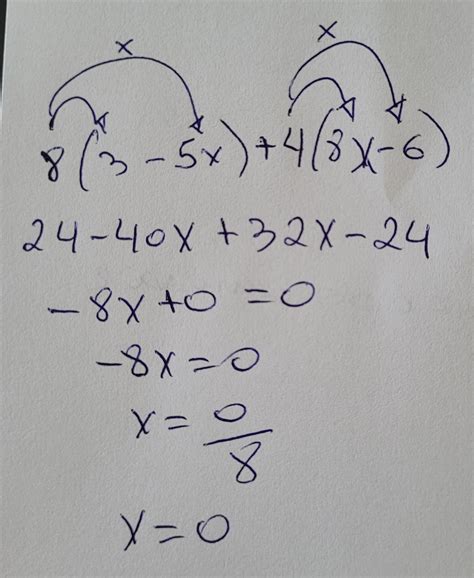 x x
8(3-5x)+4(8x-6)
24-40x+32x-24
-8x+0=0
-8x=0
x=0/8
x=0